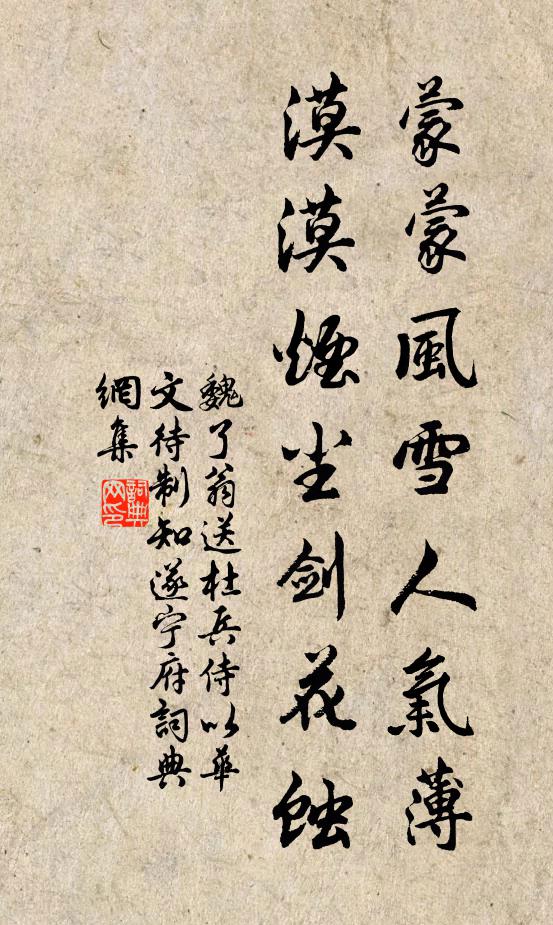 蒙蒙風雪人氣薄
漠漠煙尘劍花蝕
魏了翁送杜兵侍以華
文待制知遂宁府詞典
網集
詞典
网印